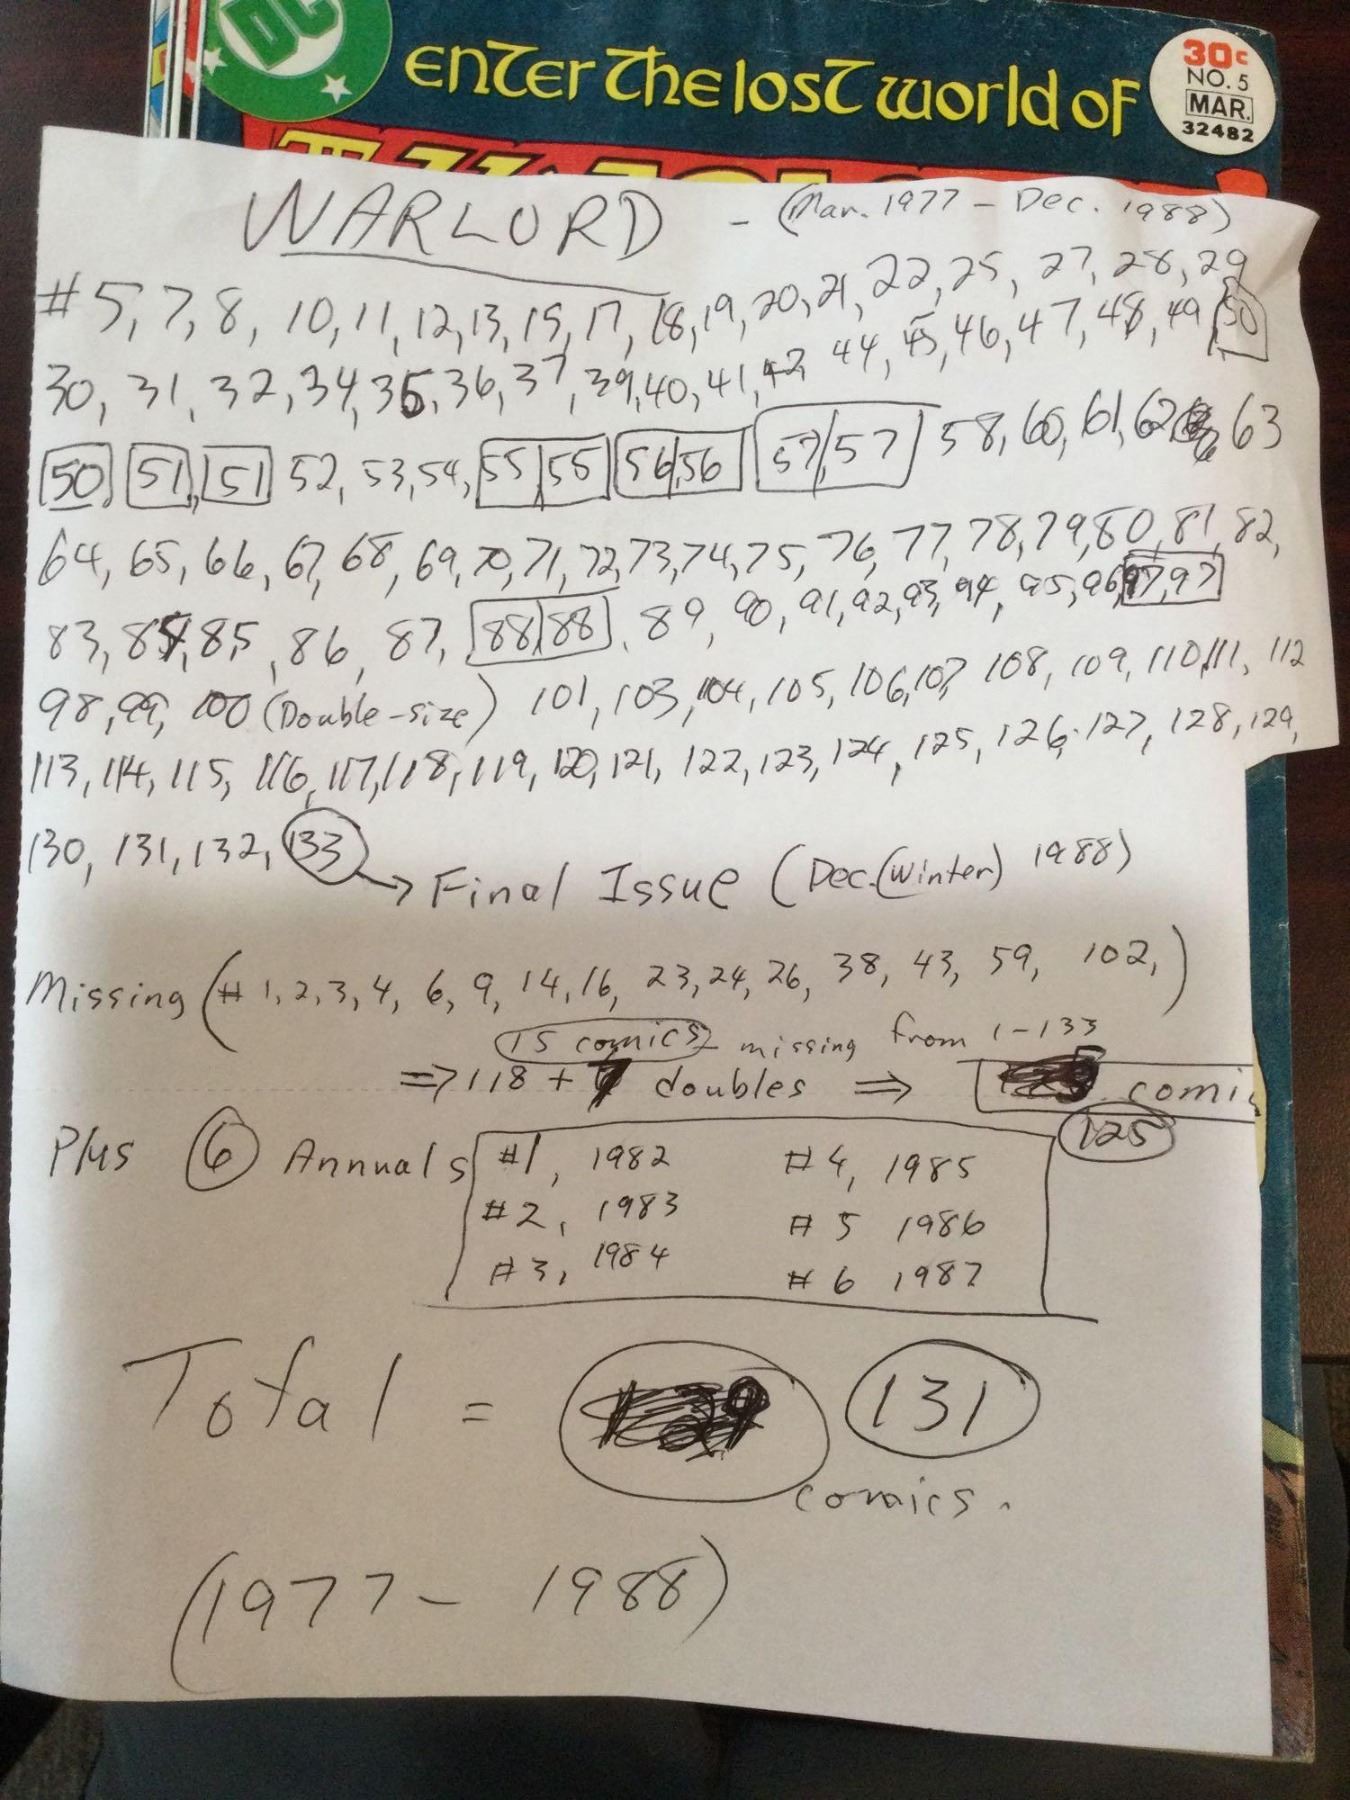 DC
enter the lost world of
30¢
NO. 5
MAR.
32482
WARLORD - (Mar. 1977 - Dec. 1988)
#5, 7, 8, 10, 11, 12, 13, 15, 17, 18, 19, 20, 21, 22, 25, 27, 28, 29
30, 31, 32, 34, 35, 36, 37, 39, 40, 41, 42, 44, 45, 46, 47, 48, 49, 50
50, 51, 51 52, 53, 54, 55, 55 56, 56 57, 57 58, 60, 61, 62, 63
64, 65, 66, 67, 68, 69, 70, 71, 72, 73, 74, 75, 76, 77, 78, 79, 80, 81, 82,
83, 84, 85, 86, 87, 88, 88, 89, 90, 91, 92, 93, 94, 95, 96, 97, 97
98, 99, 100 (Double-size) 101, 103, 104, 105, 106, 107, 108, 109, 110, 111, 112
113, 114, 115, 116, 117, 118, 119, 120, 121, 122, 123, 124, 125, 126, 127, 128, 129,
130, 131, 132, 133 → Final Issue (Dec. (Winter) 1988)
Missing (# 1, 2, 3, 4, 6, 9, 14, 16, 23, 24, 26, 38, 43, 59, 102,)
15 comics missing from 1-133
⇒ 118 + 7 doubles ⇒ comic
125
Plus 6 Annuals #1, 1982 #4, 1985
#2, 1983 #5 1986
#3, 1984 #6 1987
Total = 131
comics.
(1977 - 1988)